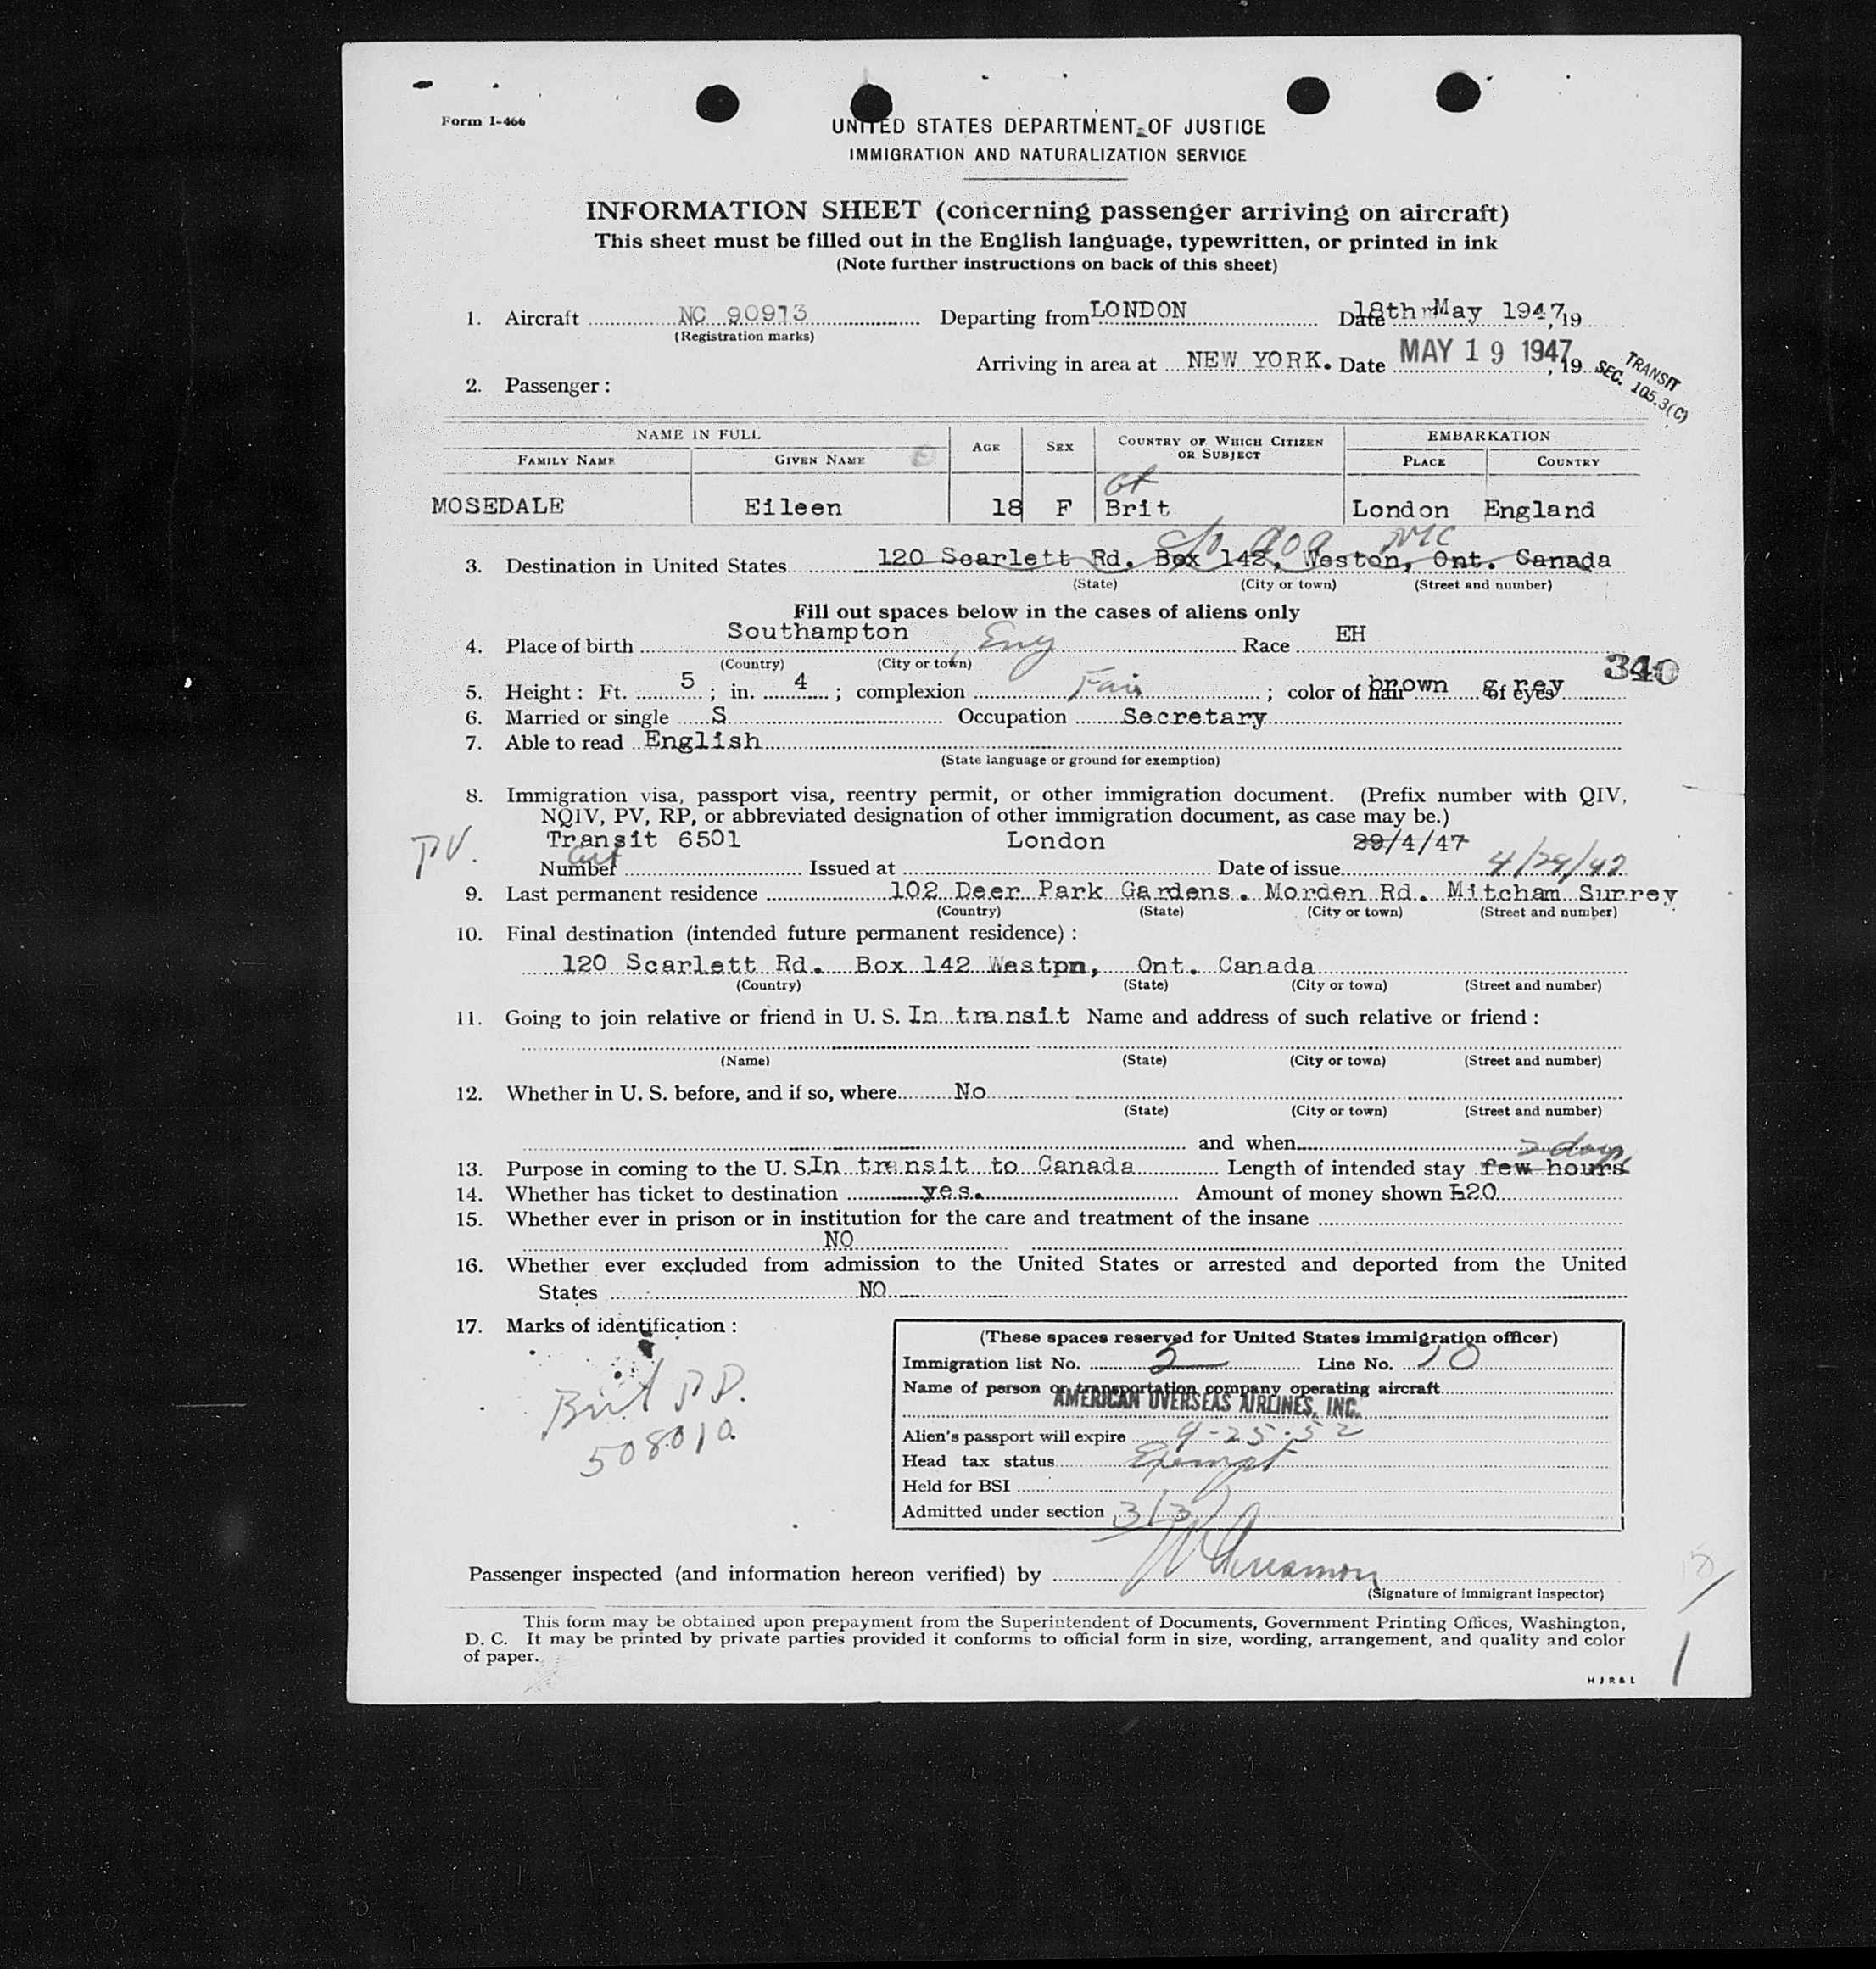 Form I-466
UNITED STATES DEPARTMENT OF JUSTICE
IMMIGRATION AND NATURALIZATION SERVICE
INFORMATION SHEET (concerning passenger arriving on aircraft)
This sheet must be filled out in the English language, typewritten, or printed in ink
(Note further instructions on back of this sheet)
1. Aircraft NC 90913 Departing from LONDON Date 18th May 1947, 19
(Registration marks)
Arriving in area at NEW YORK. Date MAY 19 1947, 19
TRANSIT
SEC. 105.3(C)
2. Passenger:
NAME IN FULL AGE SEX COUNTRY OF WHICH CITIZEN OR SUBJECT EMBARKATION
FAMILY NAME GIVEN NAME PLACE COUNTRY
Gt
MOSEDALE Eileen 18 F Brit London England
c/o AOA NYC
3. Destination in United States 120 Scarlett Rd. Box 142, Weston, Ont. Canada
(State) (City or town) (Street and number)
Fill out spaces below in the cases of aliens only
4. Place of birth Southampton Eng Race EH
(Country) (City or town)
340
5. Height: Ft. 5; in. 4; complexion Fair; color of hair brown of eyes grey
6. Married or single S Occupation Secretary
7. Able to read English
(State language or ground for exemption)
8. Immigration visa, passport visa, reentry permit, or other immigration document. (Prefix number with QIV,
NQIV, PV, RP, or abbreviated designation of other immigration document, as case may be.)
PV. Transit 6501 London 29/4/47
Number Issued at Date of issue 4/29/47
9. Last permanent residence 102 Deer Park Gardens. Morden Rd. Mitcham Surrey
(Country) (State) (City or town) (Street and number)
10. Final destination (intended future permanent residence):
120 Scarlett Rd. Box 142 Westpn, Ont. Canada
(Country) (State) (City or town) (Street and number)
11. Going to join relative or friend in U. S. In transit Name and address of such relative or friend:
(Name) (State) (City or town) (Street and number)
12. Whether in U. S. before, and if so, where No
(State) (City or town) (Street and number)
and when
2 days
13. Purpose in coming to the U. S. In transit to Canada Length of intended stay few hours
14. Whether has ticket to destination yes. Amount of money shown £20
15. Whether ever in prison or in institution for the care and treatment of the insane
NO
16. Whether ever excluded from admission to the United States or arrested and deported from the United
States NO
17. Marks of identification:
Brit PP.
508010
(These spaces reserved for United States immigration officer)
Immigration list No. 2 Line No. 10
Name of person or transportation company operating aircraft
AMERICAN OVERSEAS AIRLINES, INC.
Alien's passport will expire 9-25-52
Head tax status Exempt
Held for BSI
Admitted under section 3(3)
Passenger inspected (and information hereon verified) by
(Signature of immigrant inspector)
This form may be obtained upon prepayment from the Superintendent of Documents, Government Printing Offices, Washington,
D. C. It may be printed by private parties provided it conforms to official form in size, wording, arrangement, and quality and color
of paper.
H J R & L